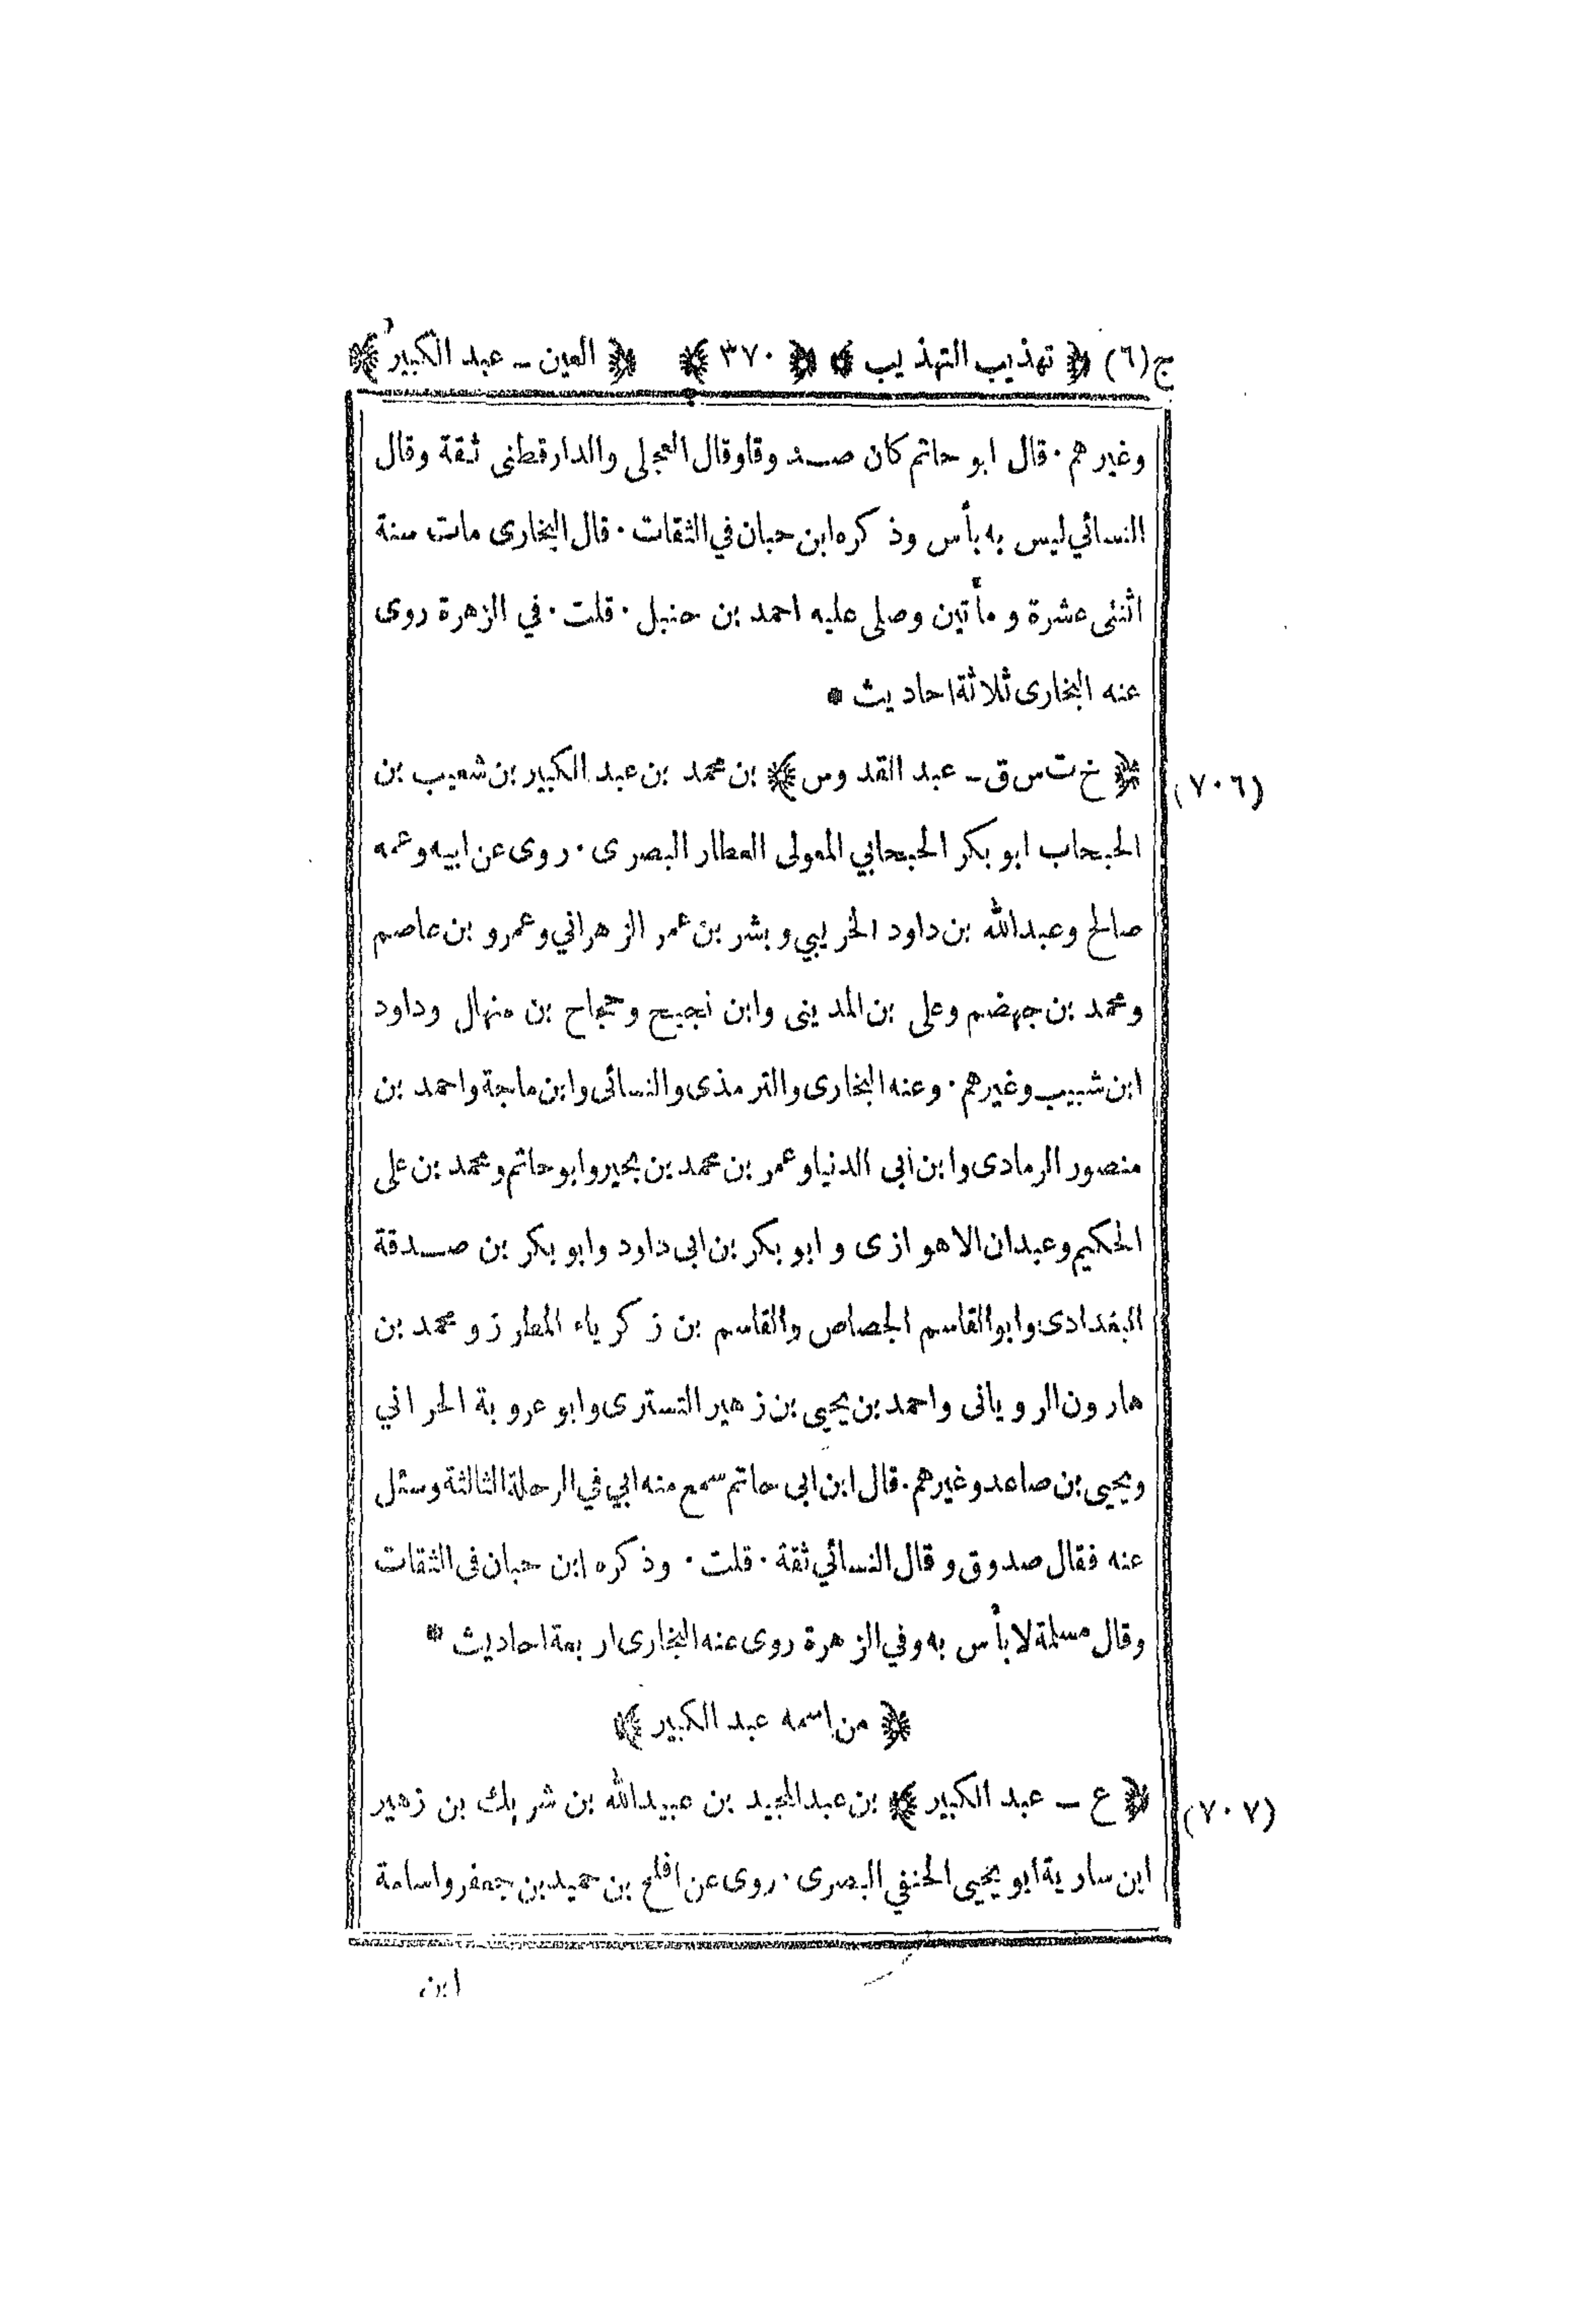 ج(٦) ﴿ تهذيب التهذيب ﴾ ﴿ ٣٧٠ ﴾ ﴿ العين ـ عبد الكبير ﴾
وغيرهم ٠ قال ابو حاتم كان صدوقا وقال العجلى والدارقطنى ثقة وقال
النسائي ليس به بأس وذكره ابن حبان في الثقات ٠ قال البخارى مات سنة
اثنتى عشرة و مأتين وصلى عليه احمد بن حنبل ٠ قلت ٠ في الزهرة روى
عنه البخارى ثلاثة احاديث *
(٧٠٦) ﴿ خ ت س ق ـ عبد القدوس ﴾ بن محمد بن عبد الكبير بن شعيب بن
الحبحاب ابو بكر الحبحابي المعولى العطار البصرى ٠ روى عن ابيه وعمه
صالح وعبدالله بن داود الخريبي و بشر بن عمر الزهراني وعمرو بن عاصم
ومحمد بن جهضم وعلى بن المدينى وابن نجيح وحجاج بن منهال وداود
ابن شبيب وغيرهم ٠ وعنه البخارى والترمذى والنسائى وابن ماجة واحمد بن
منصور الرمادى وابن أبى الدنيا وعمر بن محمد بن بجير وابو حاتم ومحمد بن على
الحكيم وعبدان الاهوازى و ابو بكر بن ابى داود وابو بكر بن صدقة
البغدادى وابوالقاسم الجصاص والقاسم بن زكرياء المطرز و محمد بن
هارون الرويانى واحمد بن يحيى بن زهير التسترى وابو عروبة الحرانى
ويحيى بن صاعد وغيرهم ٠ قال ابن ابى حاتم سمع منه ابي في الرحلة الثالثة وسئل
عنه فقال صدوق و قال النسائي ثقة ٠ قلت ٠ وذكره ابن حبان فى الثقات
وقال مسلمة لا بأس به وفي الزهرة روى عنه البخارى اربعة احاديث *
﴿ من اسمه عبد الكبير ﴾
(٧٠٧) ﴿ ع ـ عبد الكبير ﴾ بن عبدالمجيد بن عبيدالله بن شريك بن زهير
ابن سارية ابو يحيى الحنفي البصرى ٠ روى عن افلح بن حميد بن جعفر واسامة
ابن